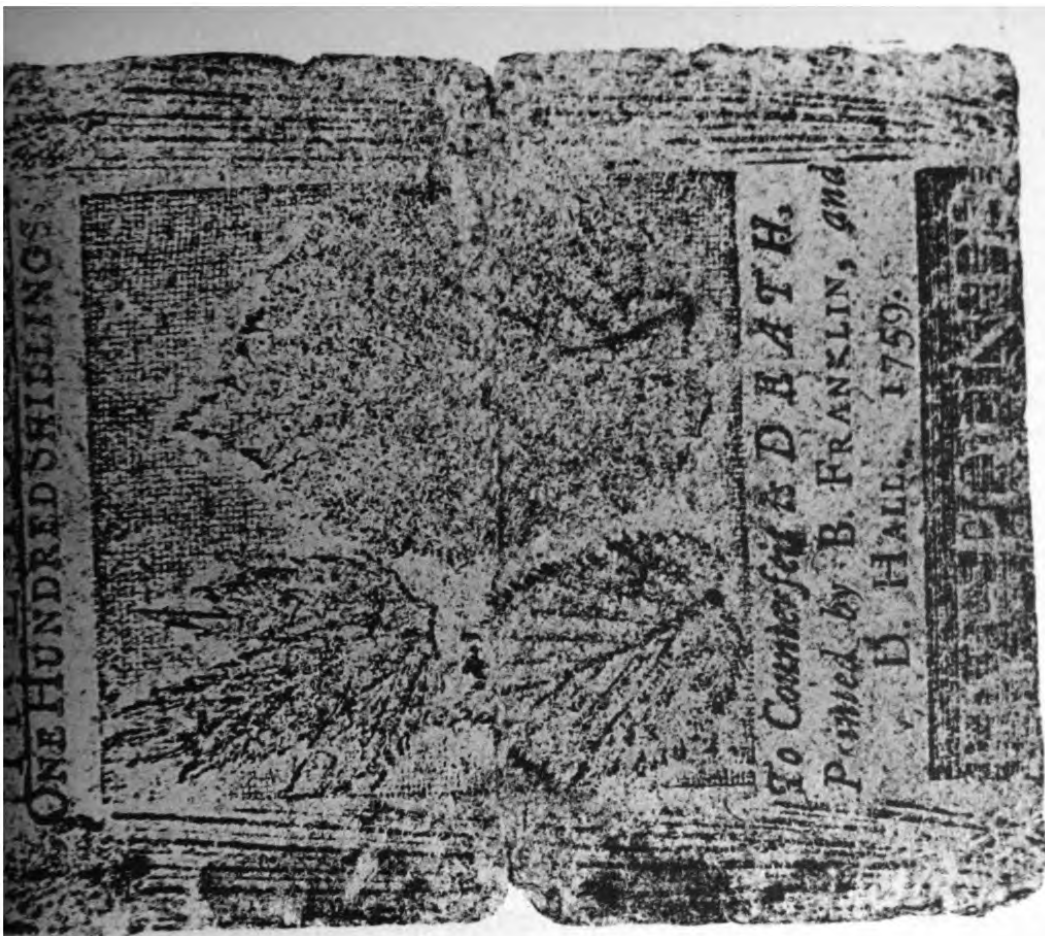 ONE HUNDRED SHILLINGS.
To Counterfeit is DEATH.
Printed by B. FRANKLIN, and
D. HALL. 1759.